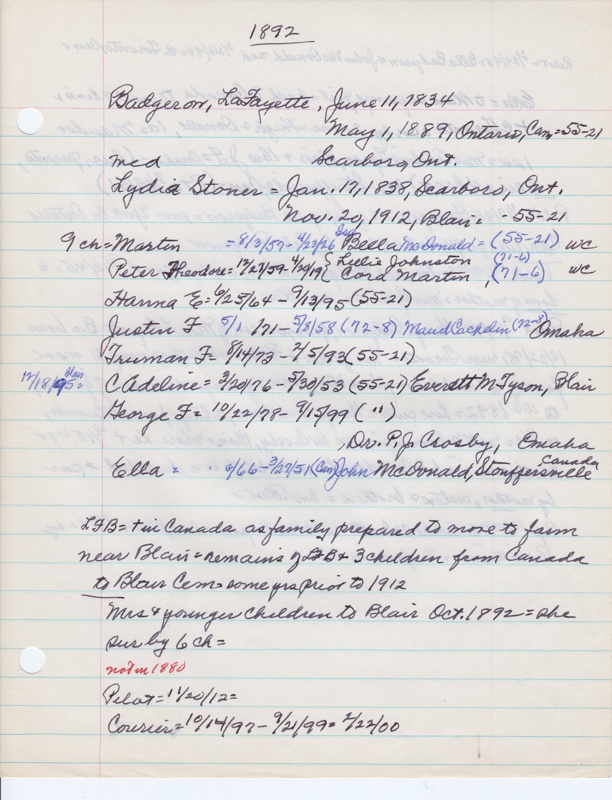 1892
Badgerow, LaFayette, June 11, 1834
May 1, 1889, Ontario, Can = 55-21
med Scarboro, Ont.
Lydia Stoner = Jan. 17, 1838, Scarboro, Ont.
Nov. 20, 1912, Blair - 55-21
9 ch = Martin = 8/3/57 - 4/23/26 Bella McDonald = (55-21) WC
Peter Theodore = 12/27/59 - 4/20/19 { Lillie Johnston (71-6)
Cora Martin, (71-6) WC
Hanna E = 6/25/64 - 9/13/95 (55-21)
Justin F 5/1/71 - 5/8/58 (72-8) Maud Cachelin (72-8) Omaha
Truman F = 8/14/73 - 2/5/93 (55-21)
12/18/95 = Blair C Adeline = 3/20/76 - 5/30/53 (55-21) Everett M Tyson, Blair
George F = 10/22/78 - 9/15/99 (")
, Dr. P. J. Crosby, Omaha
Ella = /66 - 3/27/51 (Can) John McDonald, Stouffersville Canada
LFB = + in Canada as family prepared to move to farm
near Blair = remains of LFB + 3 children from Canada
to Blair Cem = some yrs prior to 1912
Mrs + younger children to Blair Oct. 1892 = she
sur by 6 ch =
not in 1880
Pilot = 11/20/12 =
Courier = 10/14/97 - 9/21/99 = 2/22/00